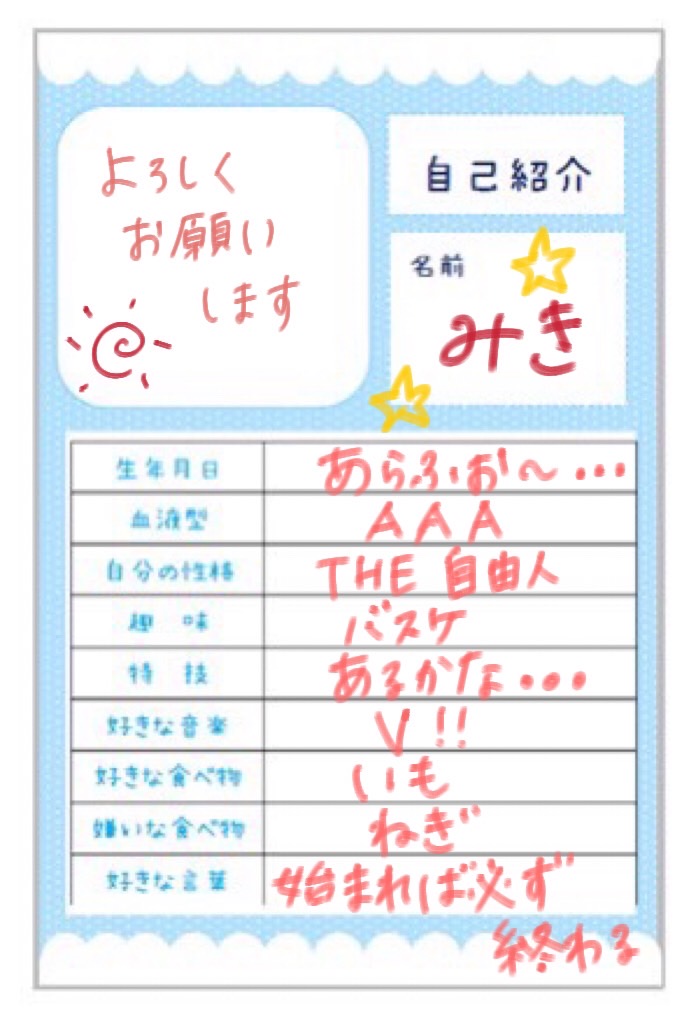 よろしく
お願い
します
自己紹介
名前
みき
生年月日 あらふぉ〜・・・
血液型 AAA
自分の性格 THE 自由人
趣味 バスケ
特技 あるかな・・・
好きな音楽 V!!
好きな食べ物 いも
嫌いな食べ物 ねぎ
好きな言葉 始まれば必ず
終わる